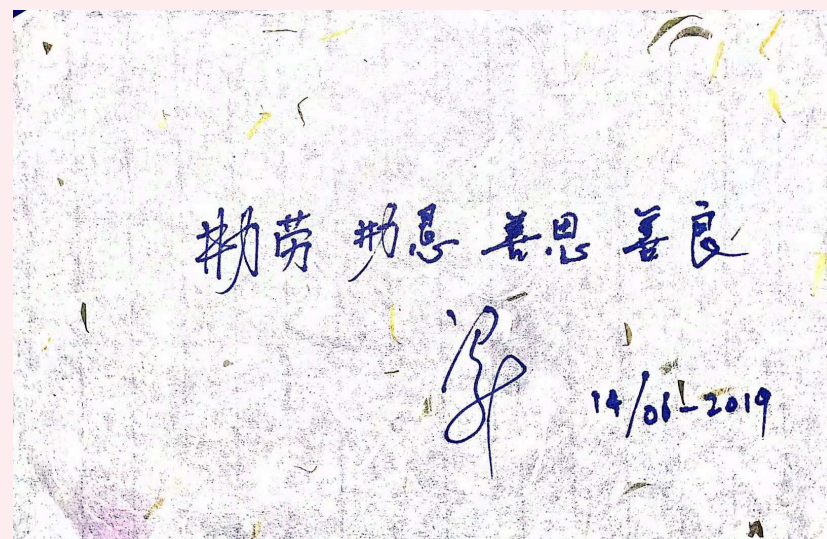 勤劳 勤恳 善思 善良
14/06-2019